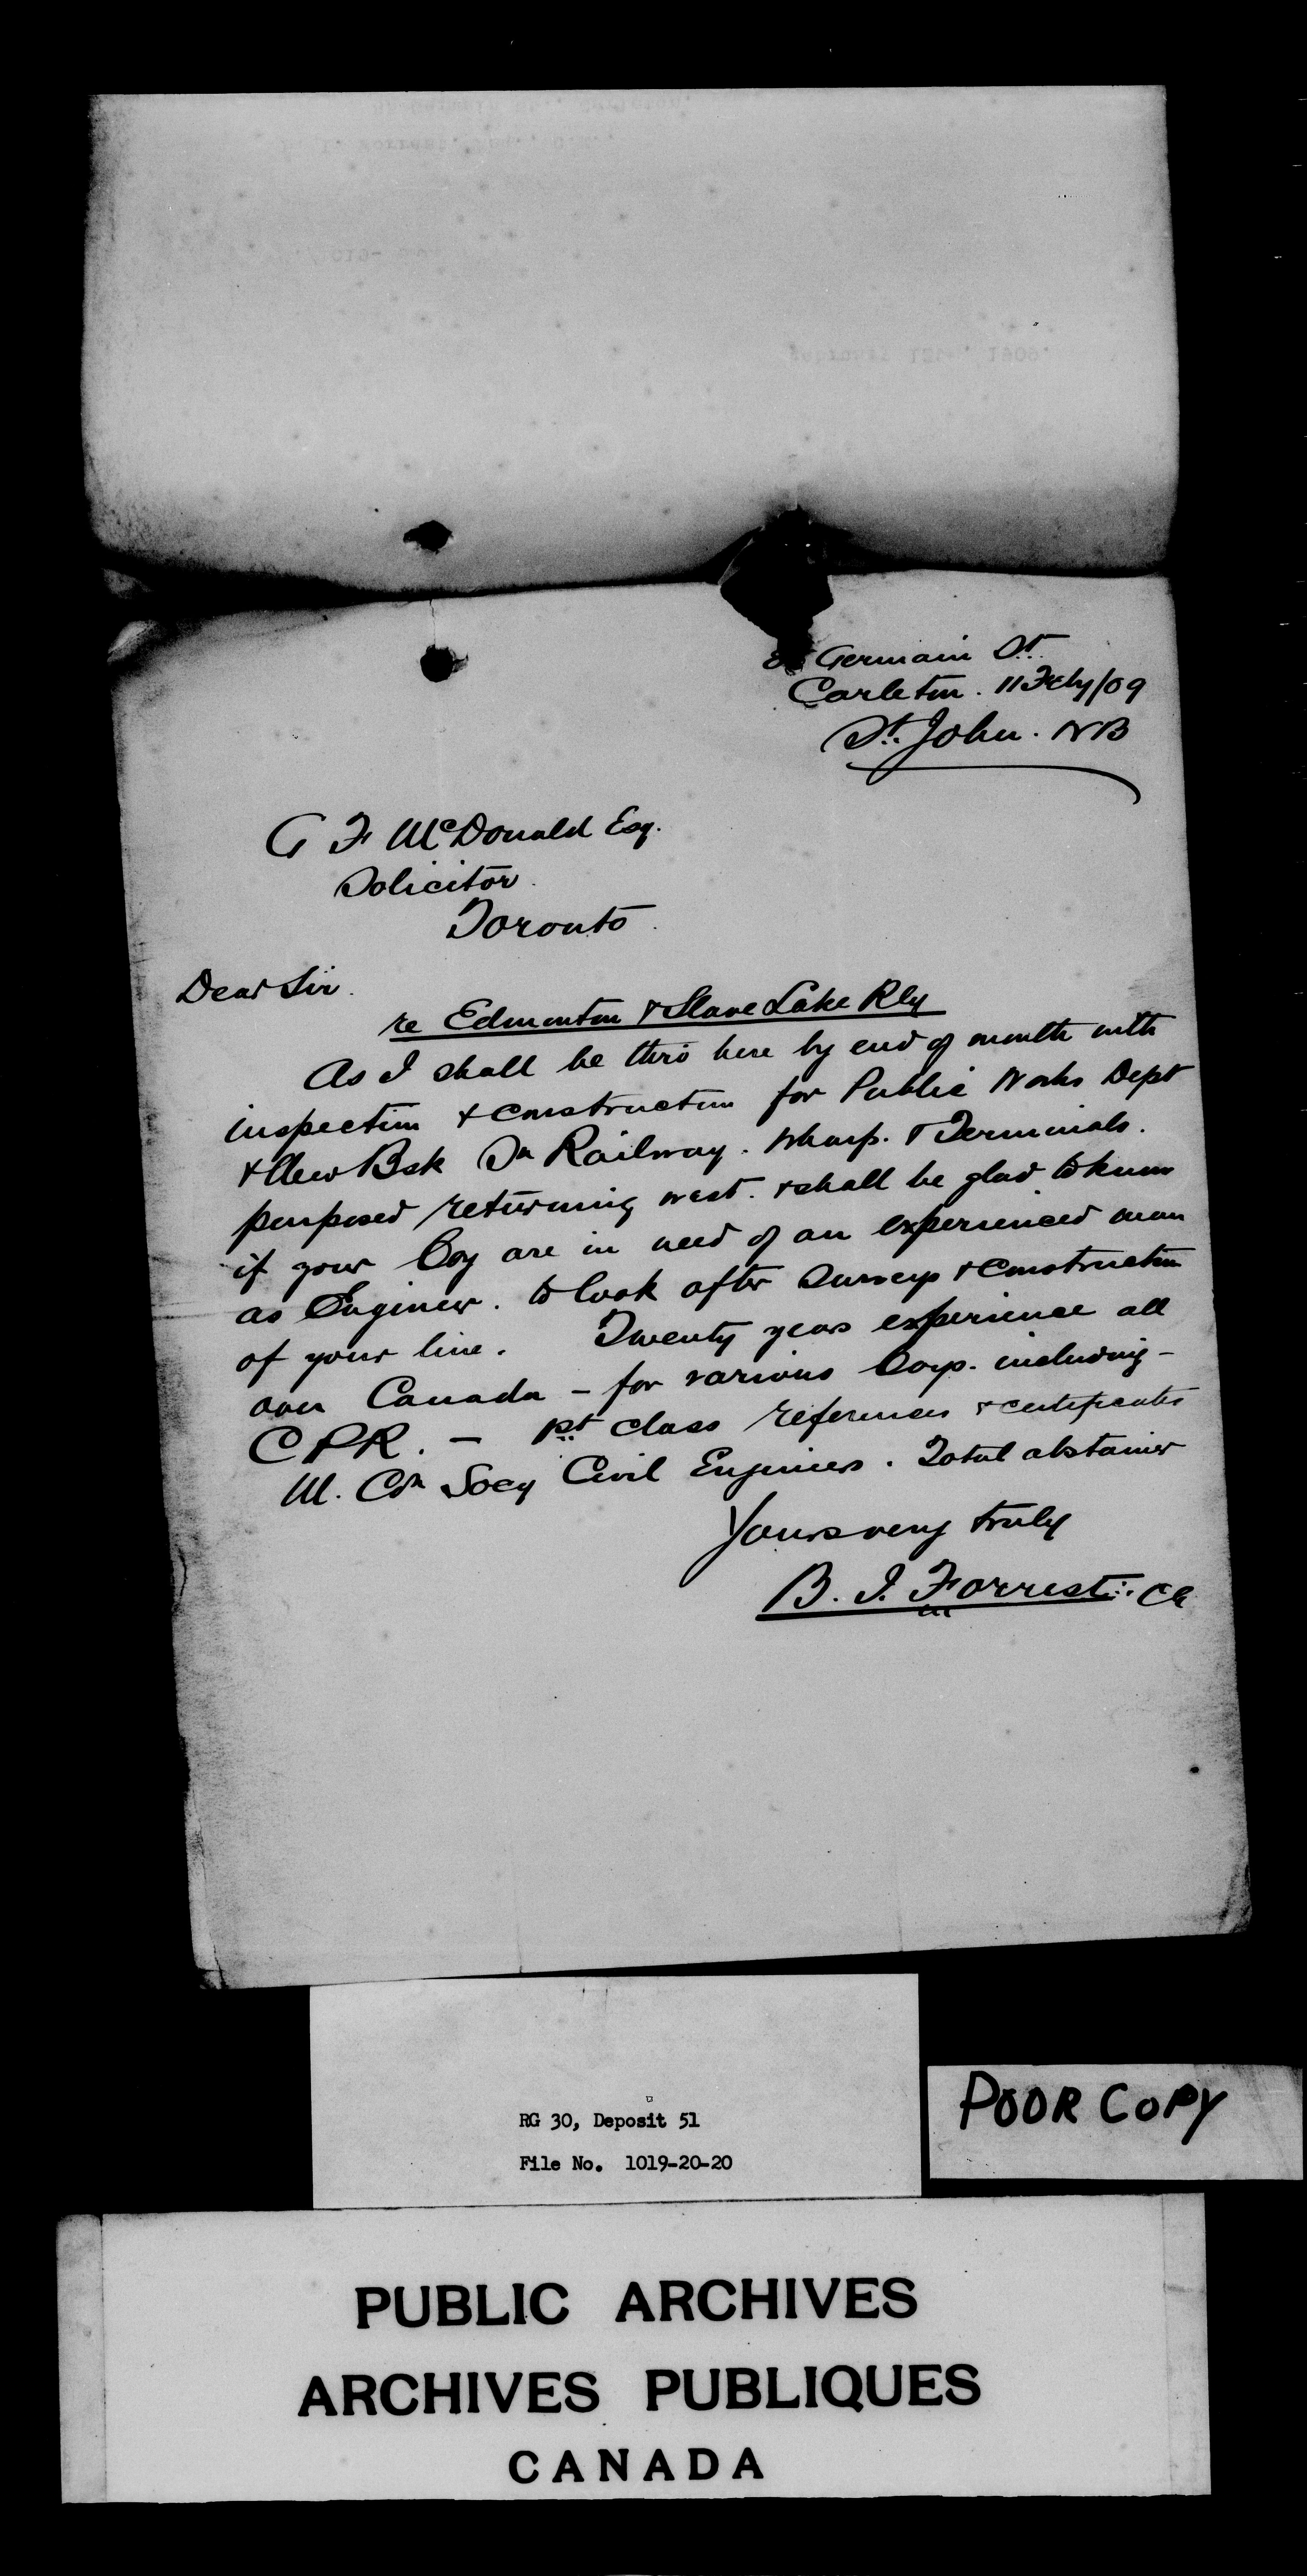 Germain St.
Carleton. 11 Feby/09
St. John. NB
G F McDonald Esq.
Solicitor.
Toronto.
Dear Sir.
re Edmonton & Slave Lake Rly
As I shall be thro here by end of month with
inspection & construction for Public Works Dept
& New Bsk Sn Railway. Wharf. & Terminals.
purposed returning west. & shall be glad to know
if your Coy are in need of an experienced man
as Engineer. to look after Surveys & construction
of your line. Twenty years experience all
over Canada - for various Coys. including -
CPR. - 1st class references & certificates
M. Cdn Socy Civil Engineers. Total abstainer
Yours very truly
B. J. Forrest. CE
RG 30, Deposit 51
File No. 1019-20-20
POOR COPY
PUBLIC ARCHIVES
ARCHIVES PUBLIQUES
CANADA